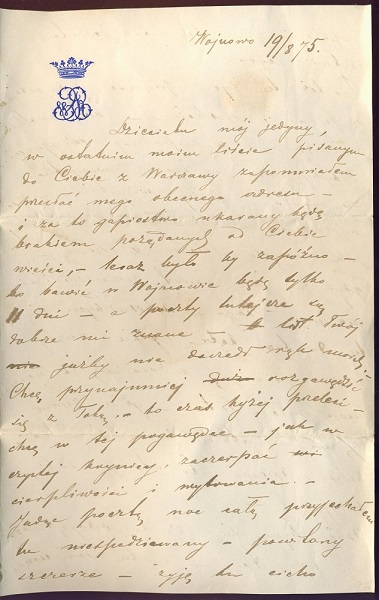 Wojnowo 19/8 75.
Dziecię mój jedyny,
w ostatnim moim liście pisanym
do Ciebie z Warszawy zapomniałem
przesłać mego obecnego adresu –
i za to gapiostwo ukarany będę
brakiem pożądanych od Ciebie
wieści, – teraz było by zapóźno –
bo bawić w Wojnowie będę tylko
11 dni – a poczty tutejsze są
dobrze mi znane – list Twój
jużby nie doszedł rąk moich. –
Chcę przynajmniej rozgawędzić
się z Tobą, – to czas lżej przeleci –
chcę w tej pogawędce – jak w
czystej krynicy, zaczerpać
cierpliwości i wytrwania. –
Jadąc pocztą noc całą przyjechałem
tu niespodziewany – powitany
szczerze – żyję tu cicho